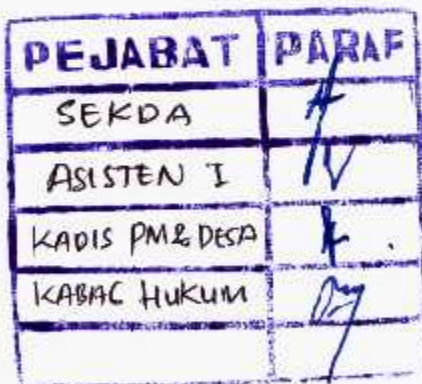 PEJABAT PARAF
SEKDA
ASISTEN I
KADIS PM& DESA
KABAG HUKUM